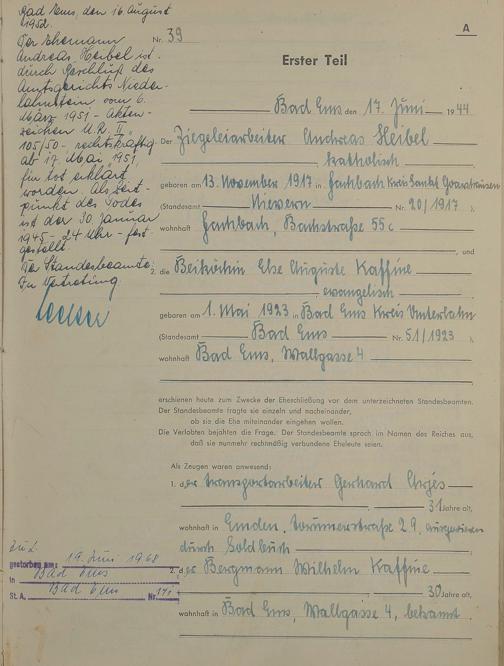 Bad Ems, den 16. August
1952.
Der Ehemann
Andreas Heibel ist
durch Beschluß des
Amtsgerichts Nieder-
lahnstein vom 6.
März 1951 - Akten-
zeichen U.R. II
105/50 - rechtskräftig
ab 17. Mai 1951,
für tot erklärt
worden. Als Zeit-
punkt des Todes
ist der 30. Januar
1945 - 24 Uhr - fest-
gestellt.
Der Standesbeamte:
In Vertretung
A
Nr. 39
Erster Teil
Bad Ems, den 17. Juni 1944
1. Der Ziegeleiarbeiter Andreas Heibel
katholisch
geboren am 13. November 1917 in Fachbach Kreis Sankt Goarshausen
(Standesamt Nievern Nr. 20/1917)
wohnhaft Fachbach, Bachstraße 55c
, und
2. die Beiköchin Else Auguste Kaffine
, evangelisch
geboren am 1. Mai 1923 in Bad Ems Kreis Unterlahn
(Standesamt Bad Ems Nr. 51/1923)
wohnhaft Bad Ems, Wallgasse 4
erschienen heute zum Zwecke der Eheschließung vor dem unterzeichneten Standesbeamten.
Der Standesbeamte fragte sie einzeln und nacheinander,
ob sie die Ehe miteinander eingehen wollen.
Die Verlobten bejahten die Frage. Der Standesbeamte sprach im Namen des Reiches aus,
daß sie nunmehr rechtmäßig verbundene Eheleute seien.
Als Zeugen waren anwesend:
1. der Transportarbeiter Gerhard
31 Jahre alt,
wohnhaft in Emden, 29, ausgewiesen
durch Soldbuch
2. der Bergmann Wilhelm Kaffine
30 Jahre alt,
wohnhaft in Bad Ems, Wallgasse 4, bekannt.
zu 2.
gestorben am: 19. Juni 1968
in Bad Ems
St. A. Bad Ems Nr.